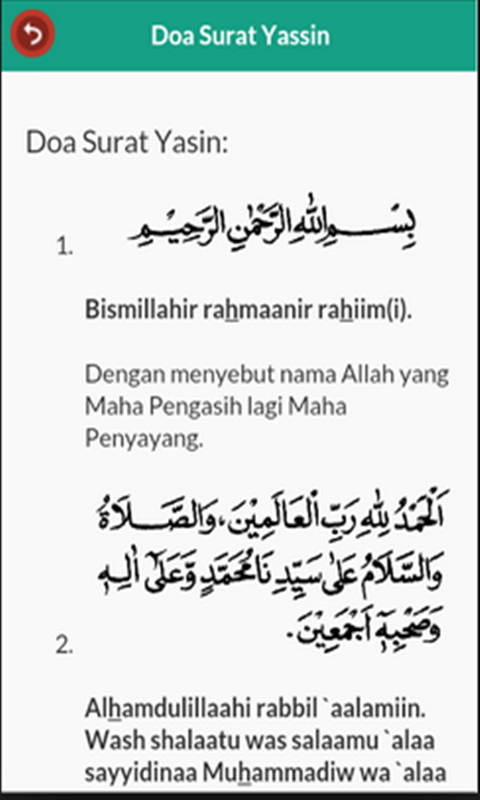 Doa Surat Yassin
Doa Surat Yasin:
1. بِسْمِ اللهِ الرَّحْمٰنِ الرَّحِيْمِ
Bismillahir rahmaanir rahiim(i).
Dengan menyebut nama Allah yang
Maha Pengasih lagi Maha
Penyayang.
اَلْحَمْدُ لِلّٰهِ رَبِّ الْعَالَمِيْنَ، وَالصَّلَاةُ
وَالسَّلَامُ عَلٰى سَيِّدِنَا مُحَمَّدٍ وَّعَلٰٓى اٰلِهٖ
2. وَصَحْبِهٖٓ اَجْمَعِيْنَ.
Alhamdulillaahi rabbil `aalamiin.
Wash shalaatu was salaamu `alaa
sayyidinaa Muhammadiw wa `alaa